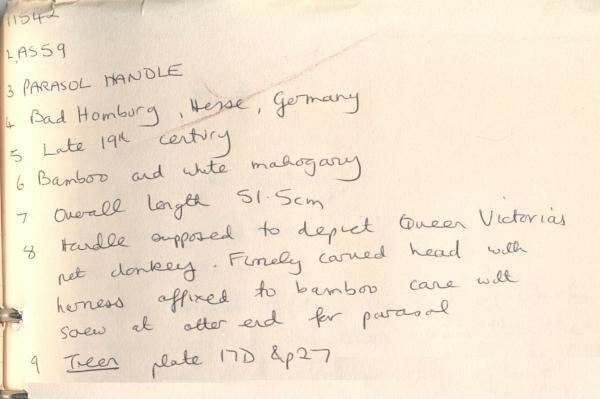 11542
2, AS59
3 PARASOL HANDLE
4 Bad Homburg, Hesse, Germany
5 Late 19th century
6 Bamboo and white mahogany
7 Overall length 51.5cm
8 Handle supposed to depict Queen Victoria's
pet donkey. Finely carved head with
harness affixed to bamboo cane with
screw at other end for parasol
9 Treen plate 17D & p27